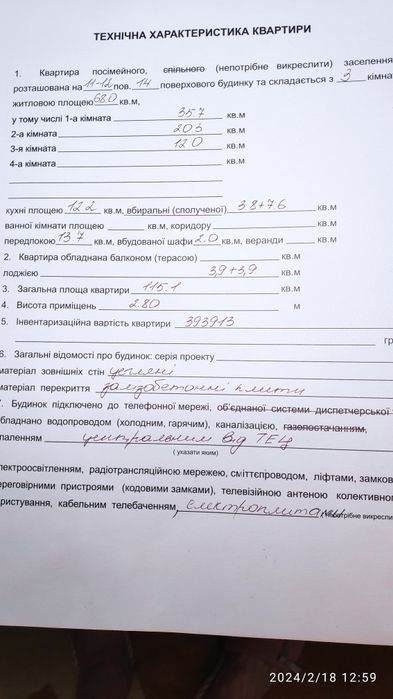 ТЕХНІЧНА ХАРАКТЕРИСТИКА КВАРТИРИ
1. Квартира посімейного, спільного (непотрібне викреслити) заселення
розташована на 11-12 пов. 14 поверхового будинку та складається з 3 кімна
житловою площею 68.0 кв.м,
у тому числі 1-а кімната 35.7 кв.м
2-а кімната 20.3 кв.м
3-я кімната 12.0 кв.м
4-а кімната кв.м
кухні площею 12.2 кв.м, вбиральні (сполученої) 3.8+7.6 кв.м
ванної кімнати площею кв.м, коридору кв.м
передпокою 13.7 кв.м, вбудованої шафи 2.0 кв.м, веранди кв.м
2. Квартира обладнана балконом (терасою) кв.м
лоджією 3,9+3,9 кв.м
3. Загальна площа квартири 115.1 кв.м
4. Висота приміщень 2.80 м
5. Інвентаризаційна вартість квартири 393913
гр
6. Загальні відомості про будинок: серія проекту
матеріал зовнішніх стін цегляні
матеріал перекриття залізобетонні плити
7. Будинок підключено до телефонної мережі, об'єднаної системи диспетчерської
обладнано водопроводом (холодним, гарячим), каналізацією, газопостачанням,
паленням центральним від ТЕЦ
( указати яким)
лектроосвітленням, радіотрансляційною мережею, сміттєпроводом, ліфтами, замков
ереговірними пристроями (кодовими замками), телевізійною антеною колективног
ористування, кабельним телебаченням, електроплитами (непотрібне викресли
2024/2/18 12:59